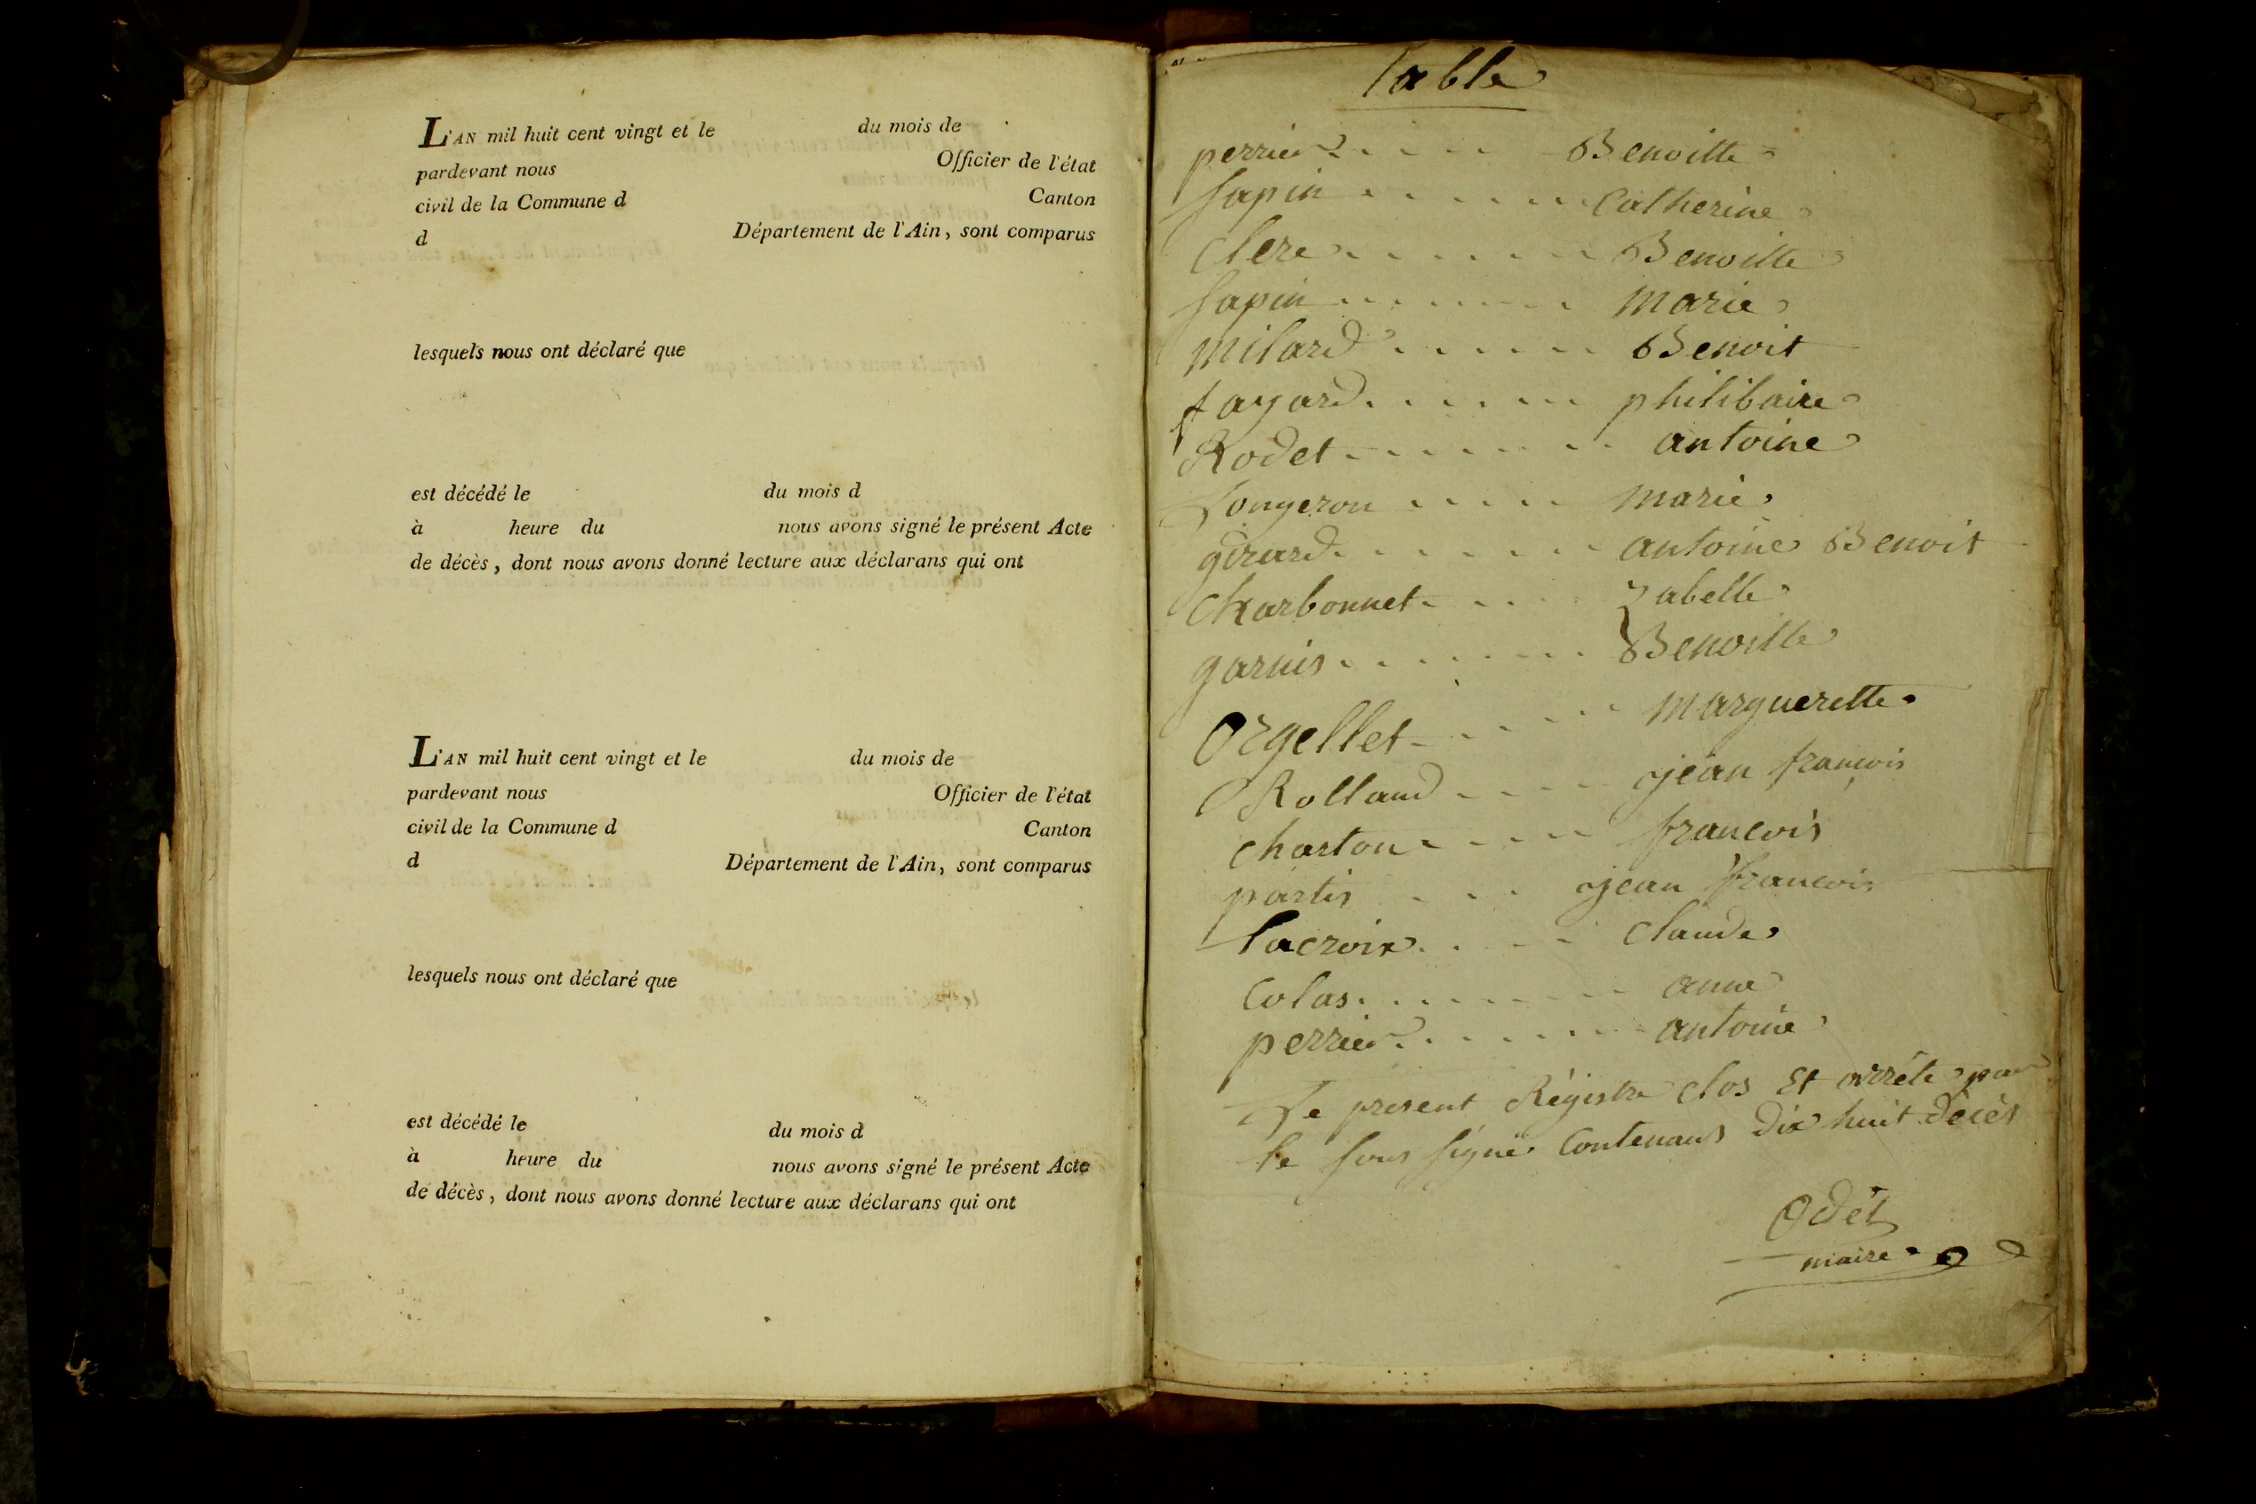 L'AN mil huit cent vingt et le du mois de
pardevant nous Officier de l'état
civil de la Commune d Canton
d Département de l'Ain, sont comparus
lesquels nous ont déclaré que
est décédé le du mois d
à heure du nous avons signé le présent Acte
de décès, dont nous avons donné lecture aux déclarans qui ont
L'AN mil huit cent vingt et le du mois de
pardevant nous Officier de l'état
civil de la Commune d Canton
d Département de l'Ain, sont comparus
lesquels nous ont déclaré que
est décédé le du mois d
à heure du nous avons signé le présent Acte
de décès, dont nous avons donné lecture aux déclarans qui ont
Table
perrier Benoitte
Sapin Catherine
Clere Benoitte
Sapin Marie
Milard Benoit
fayard philibaire
Rodet antoine
Longeron Marie
girard antoine Benoit
Charbonnet Zabelle
garnis Benoitte
Orgellet Marguerette
Rolland jean françois
Charton francois
partis jean francois
Lacroix Claude
Colas anne
perrier antoine
Le present Régistre Clos Et arrété par
le sous signé Contenans Dix huit décès
Odét
maire